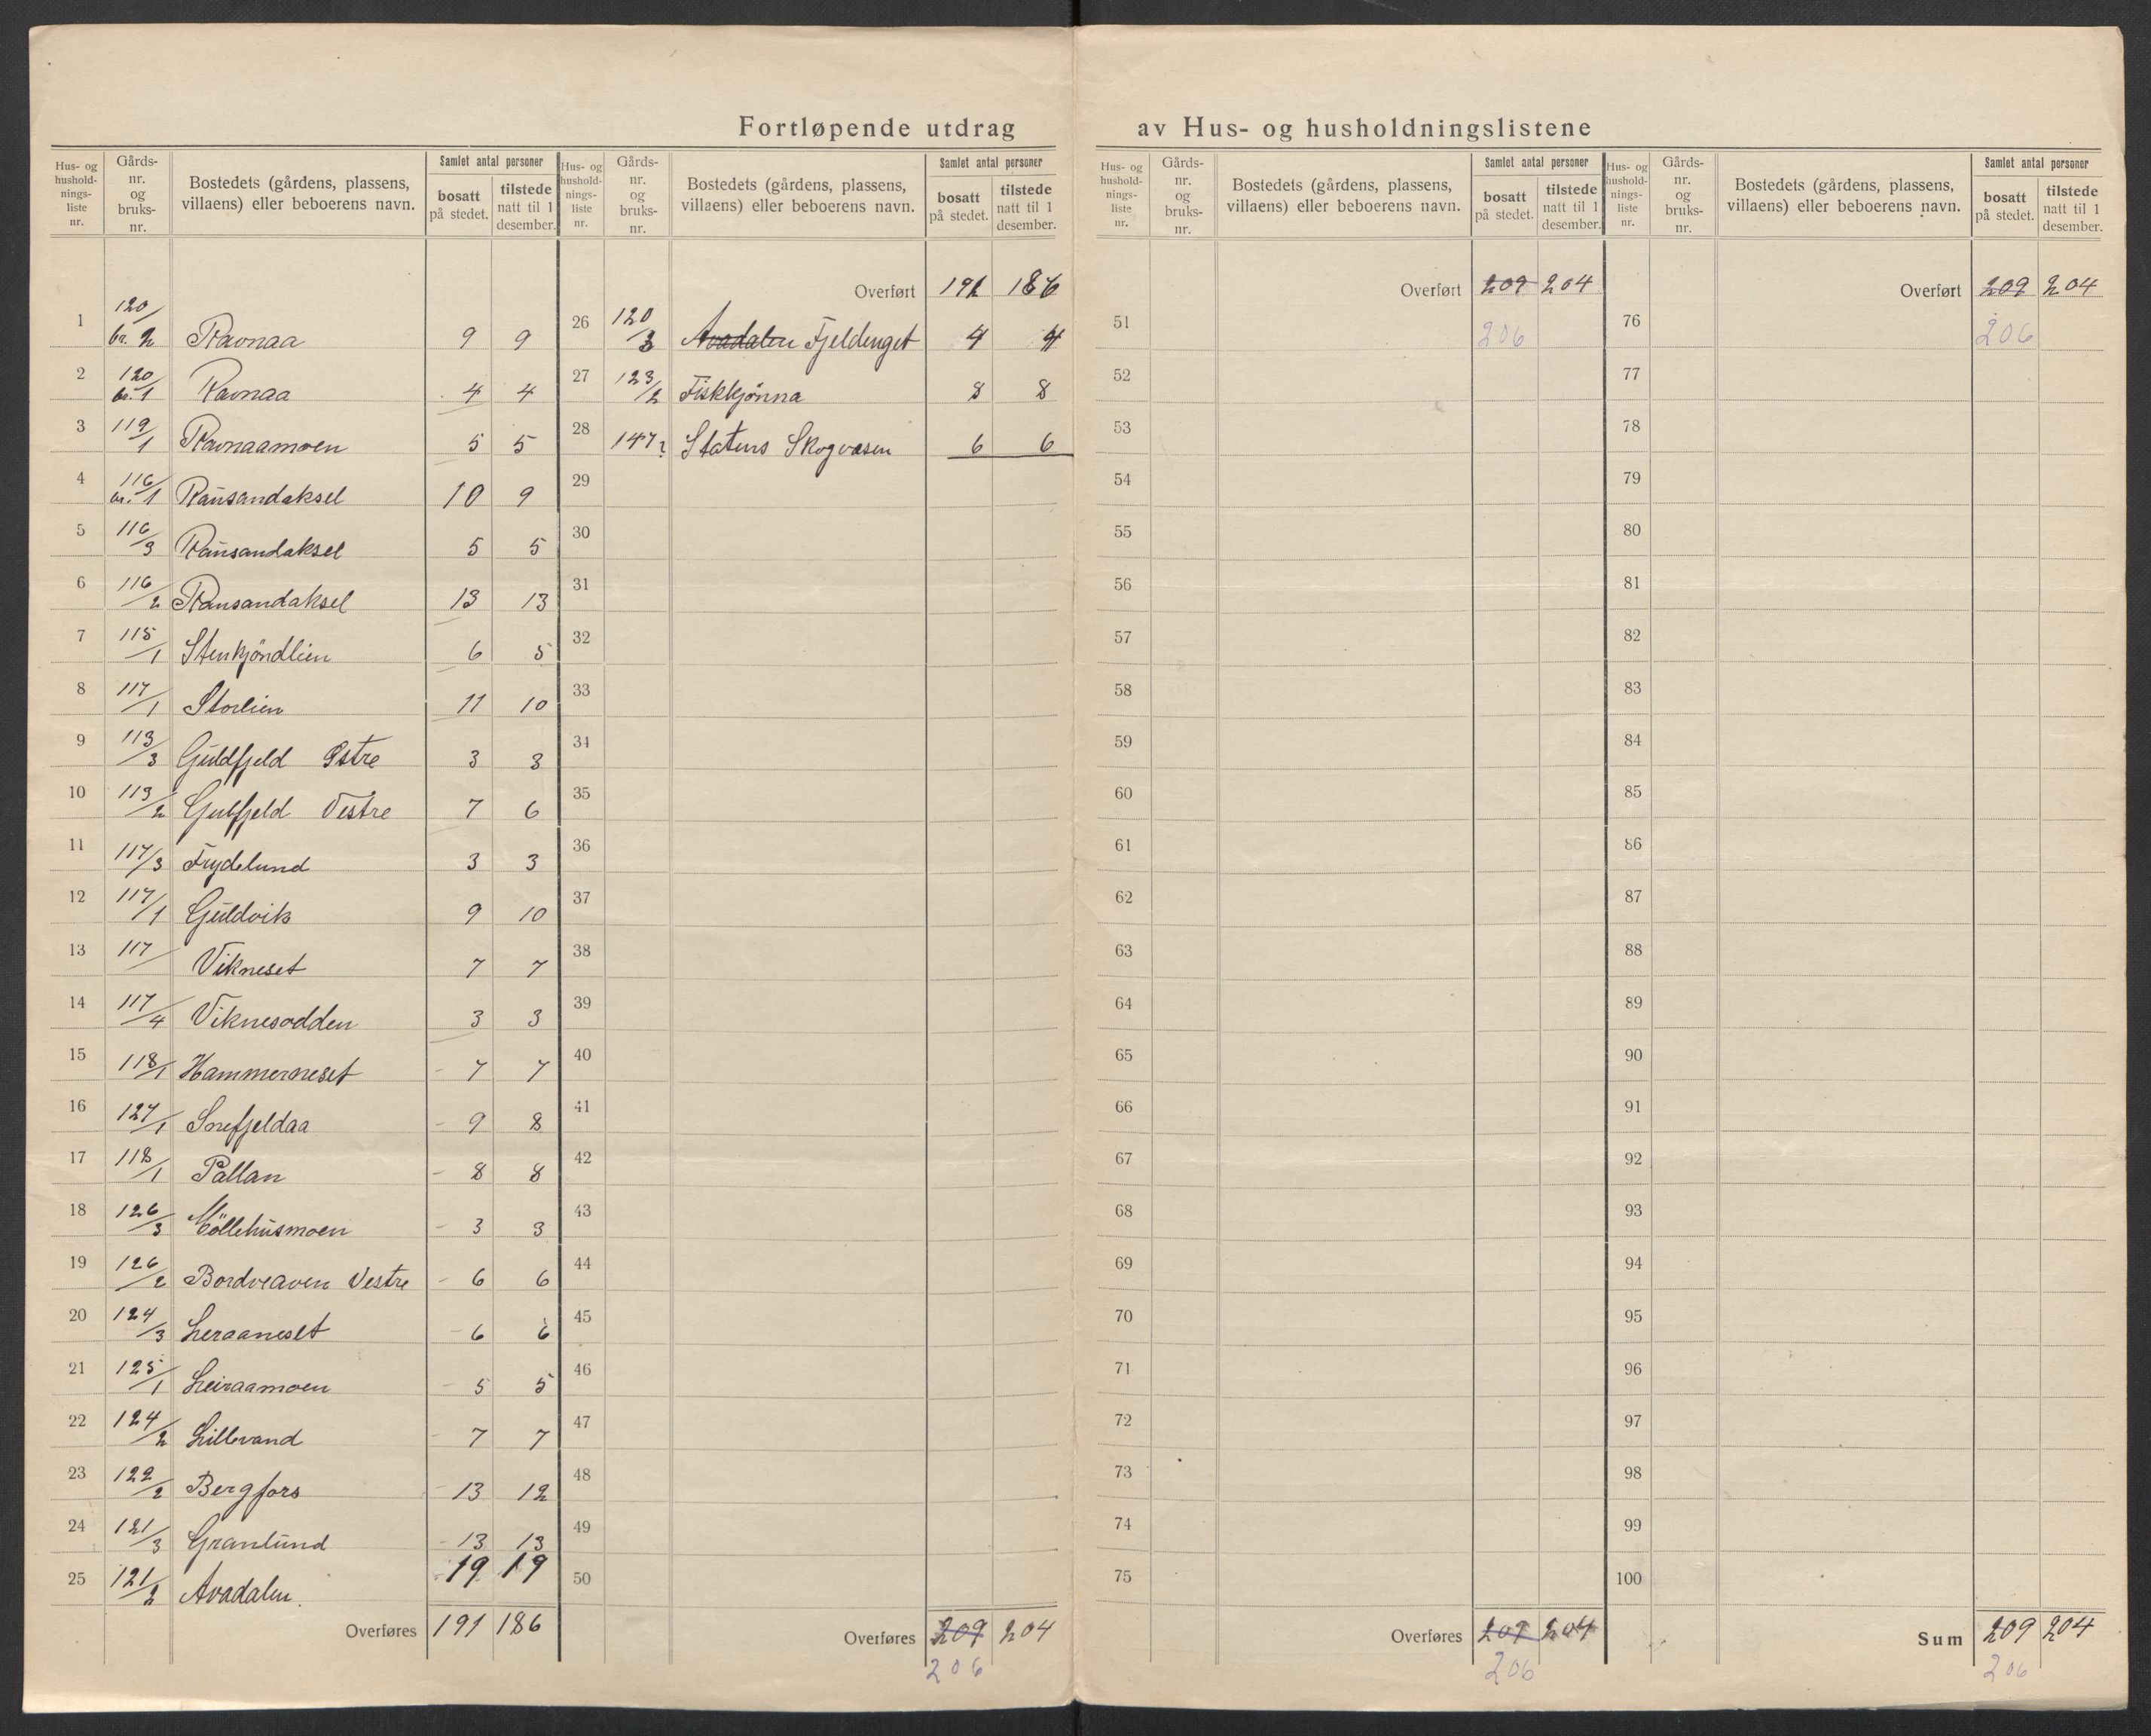 Fortløpende utdrag av Hus- og husholdningslistene
Hus- og husholdnings-liste nr. Gårds-nr. og bruks-nr. Bostedets (gårdens, plassens, villaens) eller beboerens navn. Samlet antal personer bosatt på stedet. tilstede natt til 1 desember.
1 120/br. 2 Ravnaa 9 9
2 120/br. 1 Ravnaa 4 4
3 119/1 Ravnaamoen 5 5
4 116/br. 1 Rausandaksel 10 9
5 116/3 Rausandaksel 5 5
6 116/2 Rausandaksel 13 13
7 115/1 Stenkjöndlien 6 5
8 117/1 Storlien 11 10
9 113/3 Guldfjeld Östre 3 3
10 113/2 Gulfjeld Vestre 7 6
11 117/3 Frydelund 3 3
12 117/1 Guldvik 9 10
13 117/ Vikneset 7 7
14 117/4 Viknesodden 3 3
15 118/1 Hammerneset 7 7
16 127/1 Snefjeldaa 9 8
17 118/1 Pallan 8 8
18 126/3 Möllehusmoen 3 3
19 126/2 Bordveaven Vestre 6 6
20 124/3 Leraaneset 6 6
21 125/1 Leiraamoen 5 5
22 124/2 Lillevand 7 7
23 122/2 Bergfors 13 12
24 121/3 Granlund 13 13
25 121/2 Avadalen. 19 19
Overføres 191 186
Hus- og husholdnings-liste nr. Gårds-nr. og bruks-nr. Bostedets (gårdens, plassens, villaens) eller beboerens navn. Samlet antal personer bosatt på stedet. tilstede natt til 1 desember.
Overført 191 186
26 120/3 Avadalen Fjeldenget 4 4
27 123/2 Fiskkjønna 8 8
28 147? Statens Skogvæsen 6 6
29
30
31
32
33
34
35
36
37
38
39
40
41
42
43
44
45
46
47
48
49
50
Overføres 209 204
206
Hus- og husholdnings-liste nr. Gårds-nr. og bruks-nr. Bostedets (gårdens, plassens, villaens) eller beboerens navn. Samlet antal personer bosatt på stedet. tilstede natt til 1 desember.
Overført 209 204
51 206
52
53
54
55
56
57
58
59
60
61
62
63
64
65
66
67
68
69
70
71
72
73
74
75
Overføres 209 204
206
Hus- og husholdnings-liste nr. Gårds-nr. og bruks-nr. Bostedets (gårdens, plassens, villaens) eller beboerens navn. Samlet antal personer bosatt på stedet. tilstede natt til 1 desember.
Overført 209 204
76 206
77
78
79
80
81
82
83
84
85
86
87
88
89
90
91
92
93
94
95
96
97
98
99
100
Sum 209 204
206